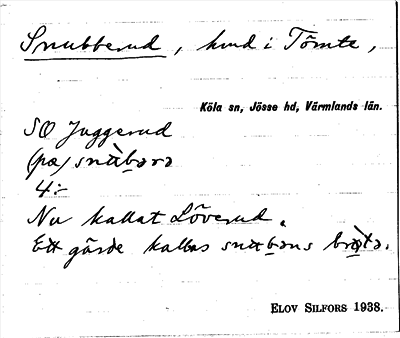 Snubberud, hmd i Tömte,
Köla sn, Jösse hd, Värmlands län.
SO Juggerud
(pæ) snùbərə
4:-
Nu kallat Löverud.
Ett gärde kallas snubəns
Elov Silfors 1938.